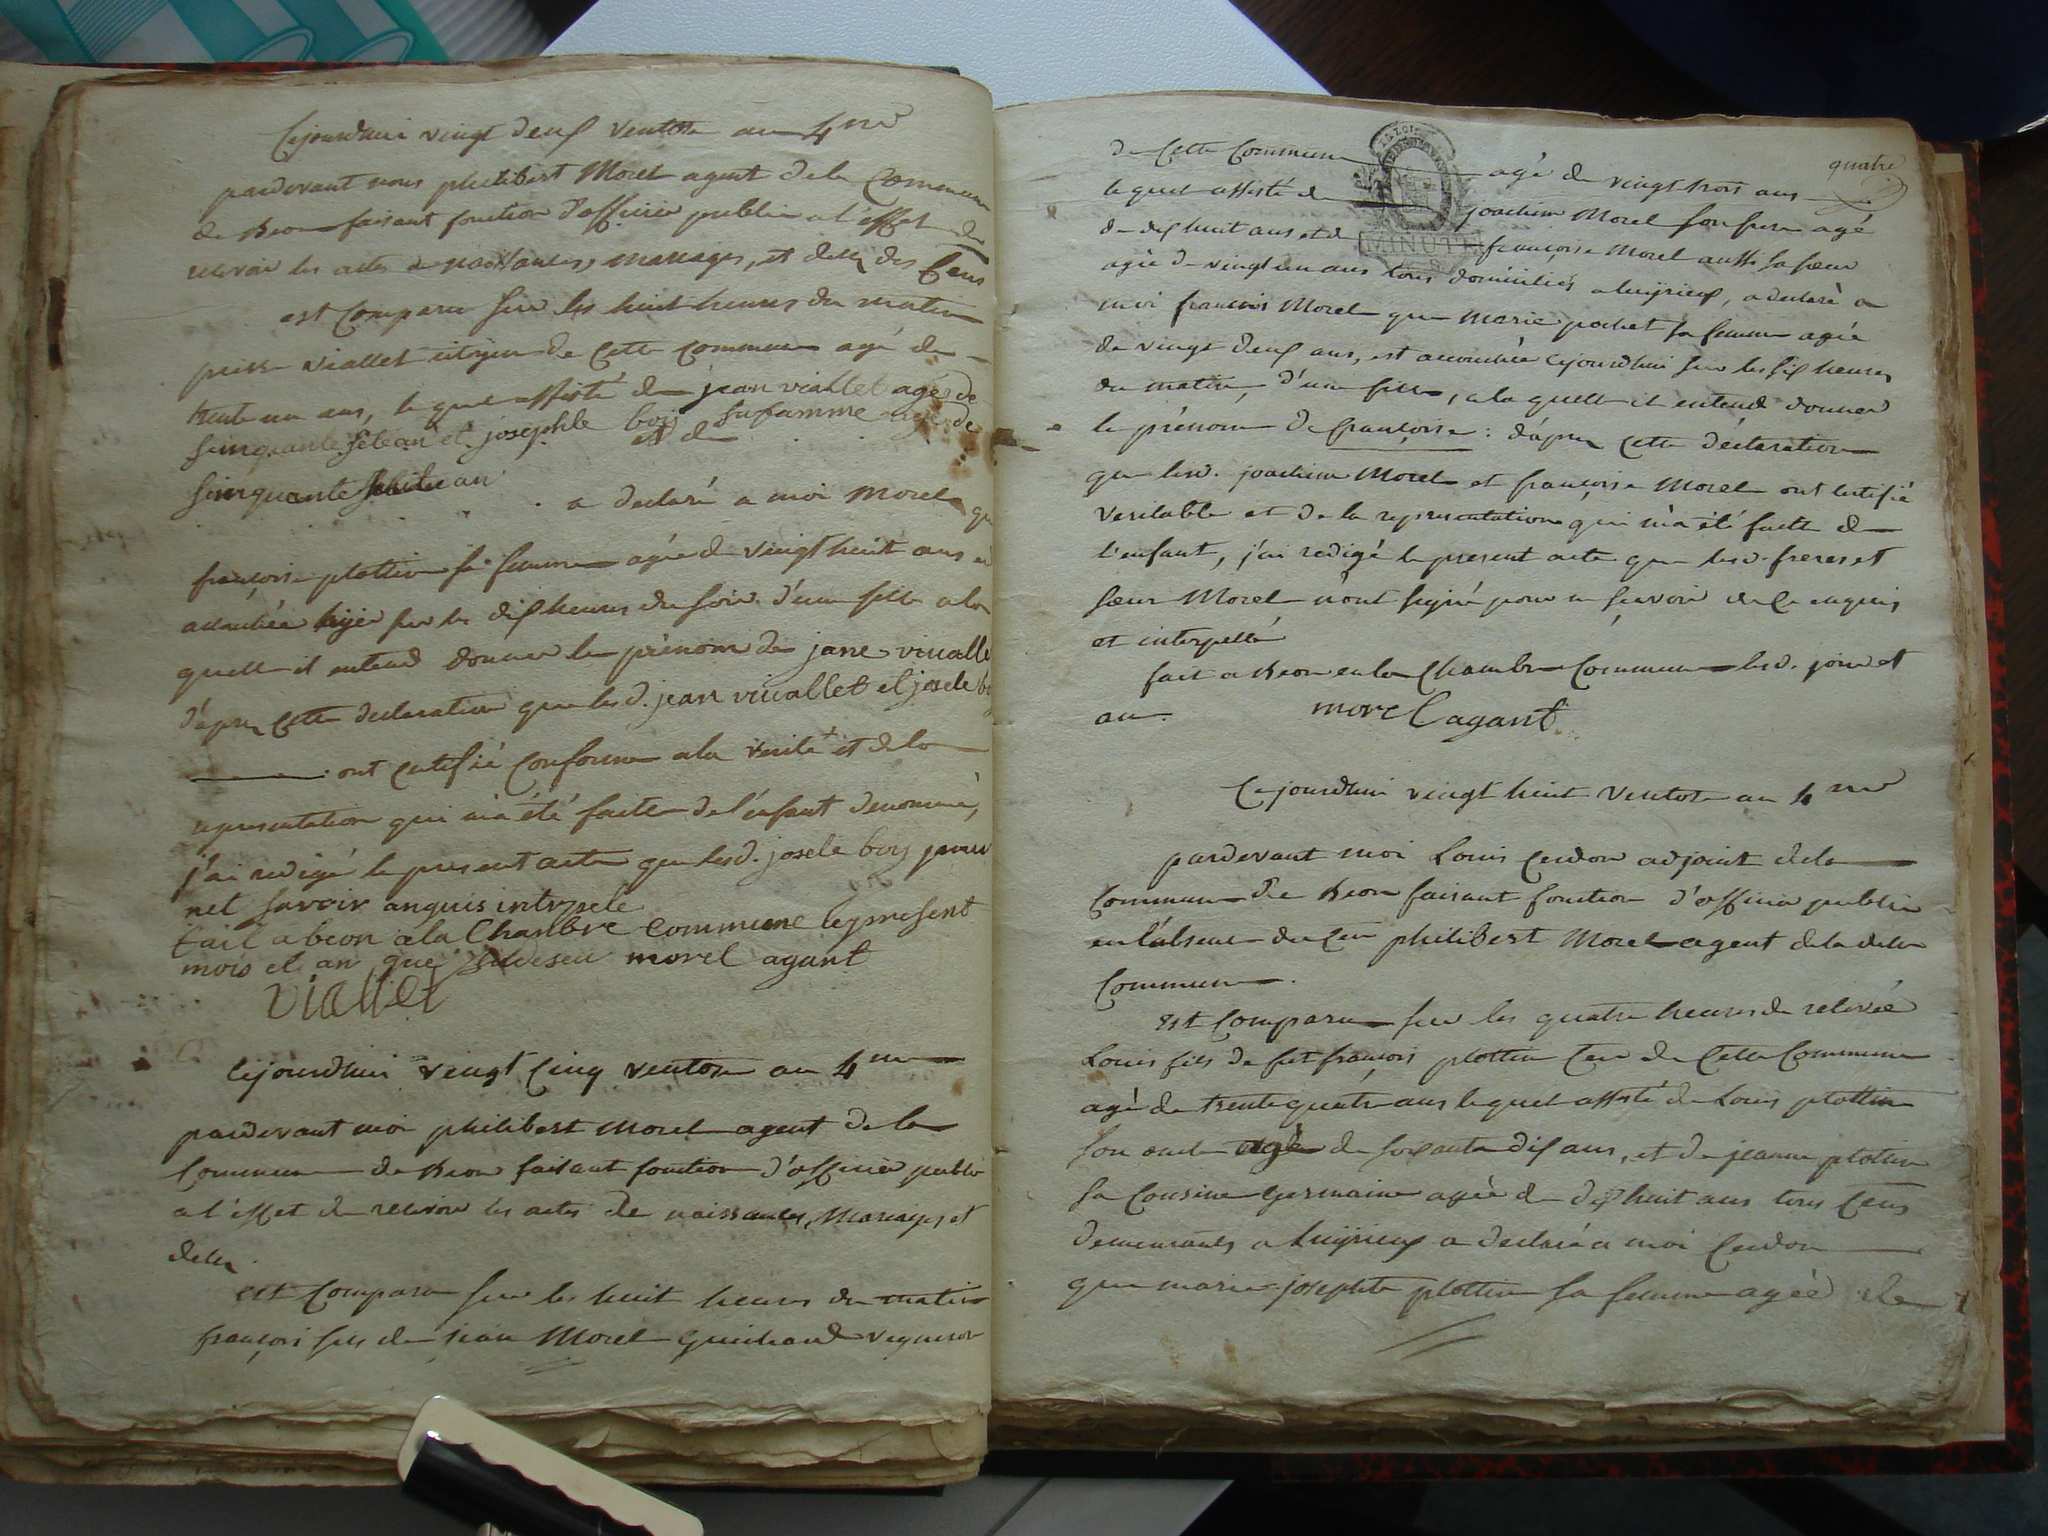 Cejourdhui vingt deux ventose an 4me
pardevant nous philibert Morel agent de la Commune
de Beon faisant fonction d'officier public a l'effet de
recevoir les actes de naissances, mariages, et deces des Cens
est Comparu sur les huit heures du matin
viallet citoyen de Cette Commune agé de
trente un ans, lequel assisté de jean viallet agé de
sinquante setean et josephle boy sa famme age de
et de
sinquante huitean
a declaré a moi Morel que
françoise plottin sa femme agée de vingt huit ans est
accouchée hyer sur les dix heures du soir d'une fille a la
quelle il entend donner le prénom de jane viualle
d'apres Cette declaration que lesd. jean viuallet et josele boy
ont certifié conforme a la verité et de la
representation qui m'a été faite de l'enfant denommé,
j'ai redigé le present acte que lesd. josele boy pour
net savoir anquis intrpele
fait a beon a la Chanbre Commune le present
mois et an que deseu morel agant
viallet
Cejourdhui vingt Cinq ventose an 4me
pardevant moi philibert Morel agent de la
Commune de Beon faisant fonction d'officier public
a l'effet de recevoir les actes de naissances, Mariages et
deces
est Comparu sur les huit heures du matin
françois fils de jean Morel Guichard vigneron
quatre
de Cette Commune agé de vingt trois ans
lequel assisté de joachim Morel son frere agé
de dix huit ans et de françoise Morel aussi sa sœur
MINUTE
agée de vingt un ans tous domiciliés a luyrieux, a declaré a
moi françois Morel que Marie pochet sa femme agée
de vingt deux ans, est accouchée cejourdhui sur les six heures
du matin, d'une fille, a la quelle il entend donner
le prénom de françoise : d'apres Cette déclaration
que lesd. joachim Morel et françoise Morel ont certifié
veritable et de la representation qui m'a été faite de
l'enfant, j'ai redigé le present acte que lesd. freres et
sœur Morel n'ont signé pour ne sçavoir de ce enquis
et interpellé
fait a Beon en la Chambre Commune lesd. jour et
an. morel agant
Cejourdhui vingt huit ventose an 4me
pardevant moi Louis Cerdon adjoint de la
Commune de Beon faisant fonction d'officier public
en l'absence du Cen philibert Morel agent de la dite
Commune.
est Comparu sur les quatre heures de relevée
Louis fils de fut françois plottin Cen de Cette Commune
agé de trente quatre ans lequel assisté de Louis plottin
son oncle agé de soixante dix ans, et de jeanne plottin
sa Cousine Germaine agée de dix huit ans tous Cens
demeurants a luyrieux a declaré a moi Cerdon
que marie josephte plottin sa femme agée de